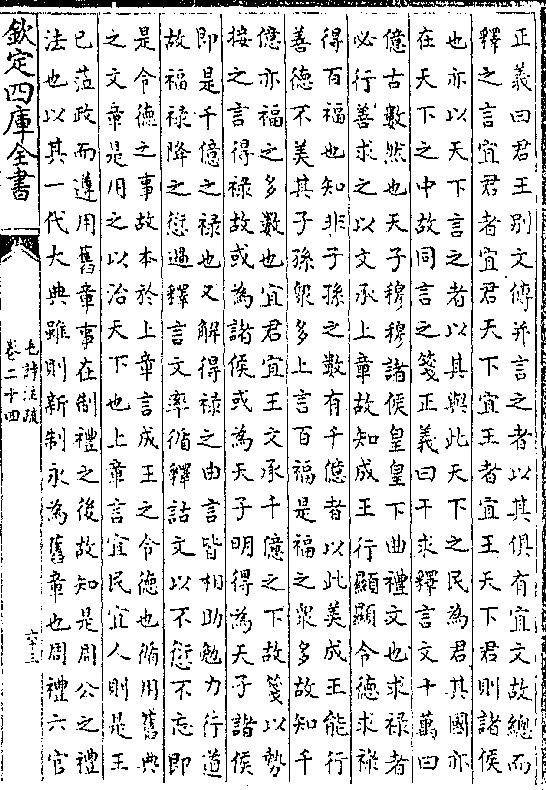 正義曰君王别文傳并言之者以其俱有宜文故總而
釋之言宜君者宜君天下宜王者宜王天下君則諸侯
也亦以天下言之者以其與此天下之民為君其國亦
在天下之中故同言之箋正義曰干求釋言文十萬曰
億古數然也天子穆穆諸侯皇皇下曲禮文也求禄者
必行善求之以文承上章故知成王行顯顯令德求禄
得百福也知非子孫之數有千億者以此美成王能行
善德不美其子孫衆多上言百福是福之衆多故知千
億亦福之多數也宜君宜王文承千億之下故箋以勢
接之言得禄故或為諸侯或為天子明得為天子諸侯
即是千億之禄也又解得禄之由言皆相助勉力行道
故福禄降之愆過釋言文率循釋詁文以不愆不忘即
是令德之事故本於上章言成王之令德也循用舊典
之文章是用之以治天下也上章言宜民宜人則是王
已蒞政而遵用舊章事在制禮之後故知是周公之禮
法也以其一代大典雖則新制永為舊章也周禮六官
欽定四庫全書
毛詩注疏
卷二十四
六十三